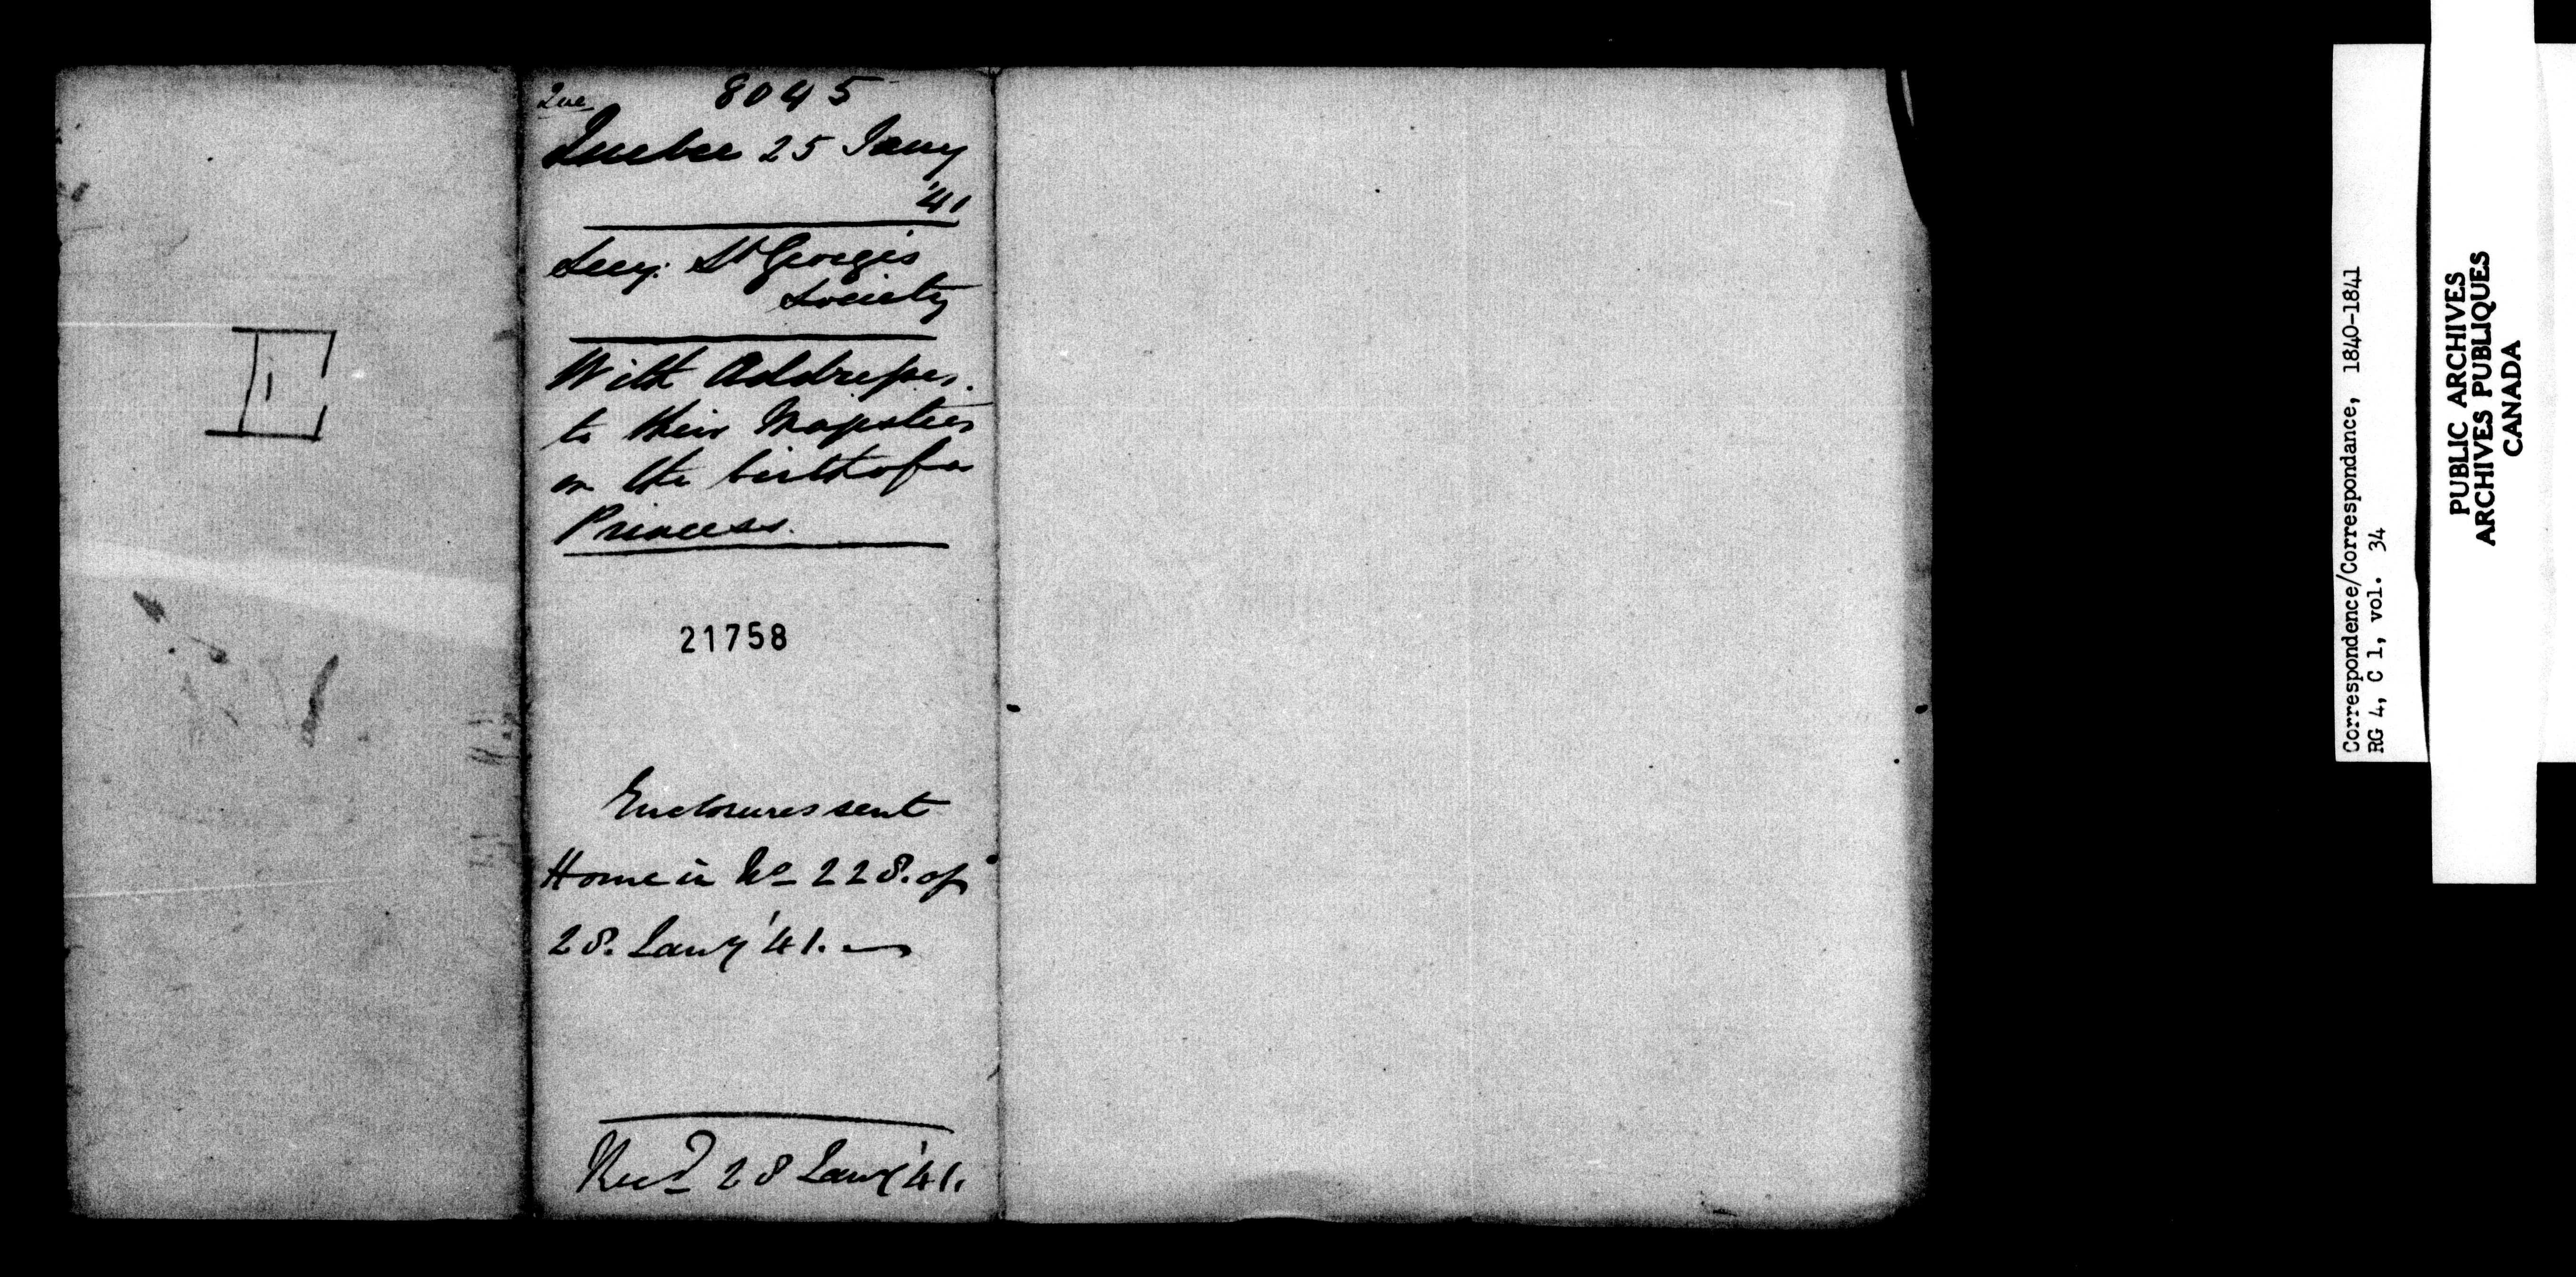 Que
8045
Quebec 25 Jany
'41
Secy. St George's
Society
With Addresses.
to their Majesties
on the birth of a
Princess.
21758
Enclosures sent
Home in No 228. of
28. Jany '41.
Recd 28 Jany '41.
Correspondence/Correspondance, 1840-1841
RG 4, C 1, vol. 34
PUBLIC ARCHIVES
ARCHIVES PUBLIQUES
CANADA